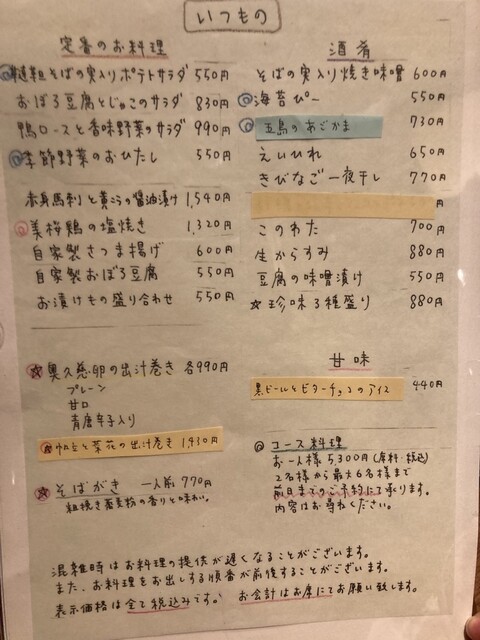 いつもの
定番のお料理
そばの実入りポテトサラダ 550円
おぼろ豆腐とじゃこのサラダ 830円
鴨ロースと香味野菜のサラダ 990円
季節野菜のおひたし 550円
赤身馬刺と黄こうの醤油漬け 1,540円
美桜鶏の塩焼き 1,320円
自家製さつま揚げ 600円
自家製おぼろ豆腐 550円
お漬けもの盛り合わせ 550円
☆奥久慈卵の出汁巻き 各990円
プレーン
甘口
青唐辛子入り
と菜花の出汁巻き 1,430円
☆そばがき 一人前 770円
粗挽き蕎麦粉の香りと味わい。
酒肴
そばの実入り焼き味噌 600円
海苔ぴー 550円
五島のあごかま 730円
えいひれ 650円
きびなご一夜干し 770円
円
このわた 700円
生からすみ 880円
豆腐の味噌漬け 550円
☆珍味3種盛り 880円
甘味
黒ビールとビターチョコのアイス 440円
◎コース料理
お一人様 5,300円(席料・税込)
2名様から最大6名様まで
前日までのご予約にて承ります。
内容はお尋ねください。
混雑時はお料理の提供が遅くなることがございます。
また、お料理をお出しする順番が前後することがございます。
表示価格は全て税込みです。 お会計はお席にてお願い致します。